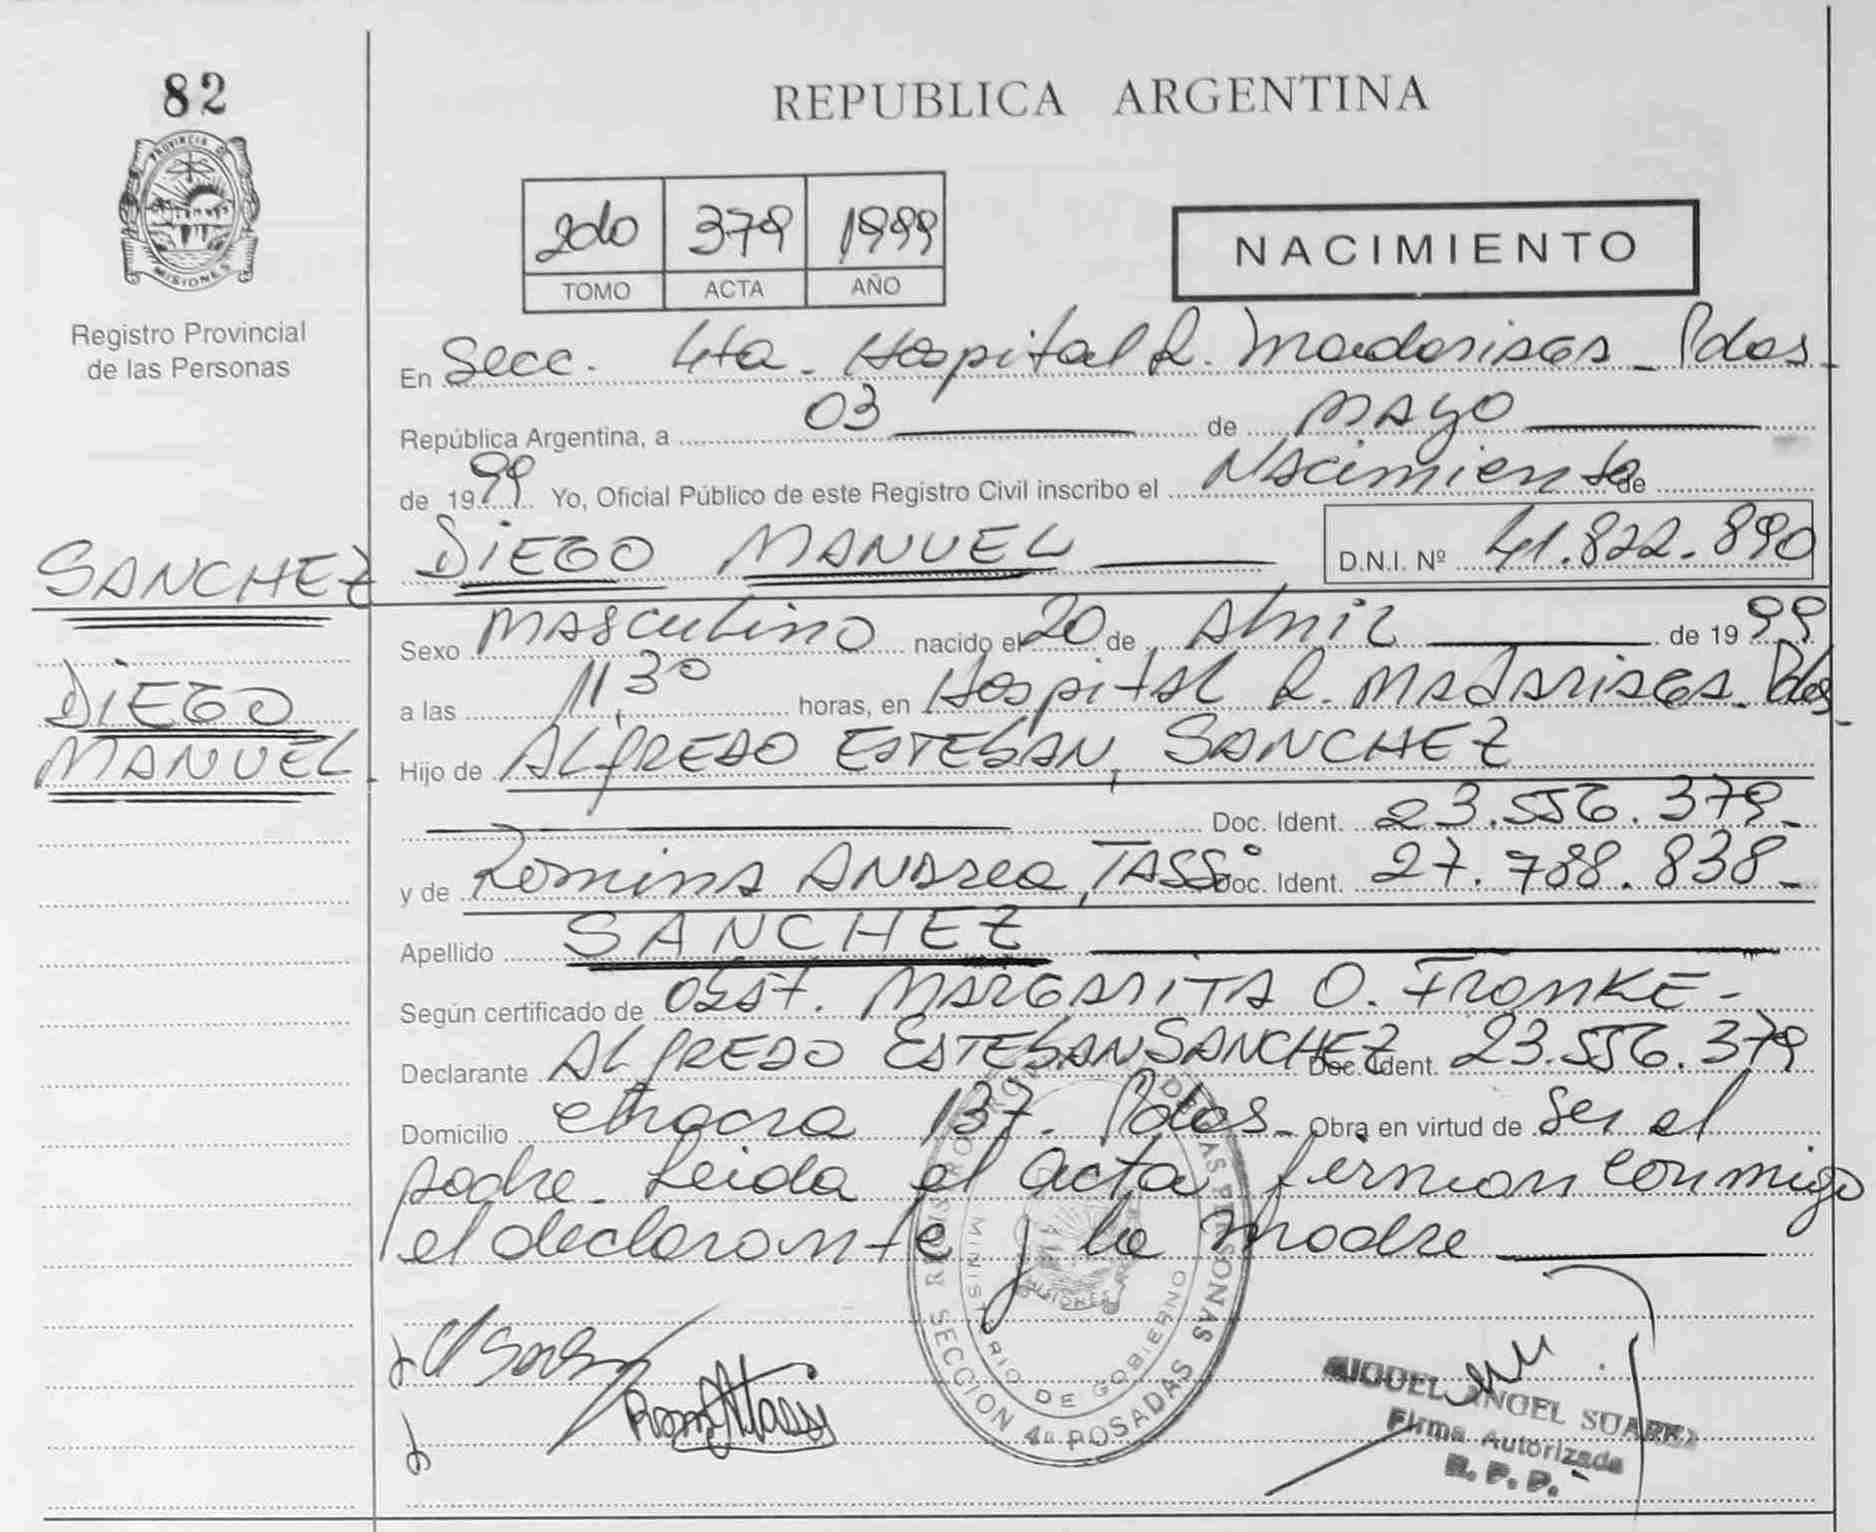 82
REPUBLICA ARGENTINA
PROVINCIA D
MISIONES
Registro Provincial
de las Personas
2do 379 1999
TOMO ACTA AÑO
NACIMIENTO
En Secc. 4ta. Hospital R. Madariaga - Pdas -
República Argentina, a 03 de MAYO
de 1999 Yo, Oficial Público de este Registro Civil inscribo el Nacimiento de
SANCHEZ
DIEGO MANUEL D.N.I. Nº 41.822.890
Sexo MASCULINO nacido el 20 de Abril de 1999
DIEGO
MANUEL -
a las 11,30 horas, en Hospital R. MADARIAGA - Pdas -
Hijo de ALFREDO ESTEBAN, SANCHEZ
Doc. Ident. 23.556.379 -
y de Romina ANDREA, TASSI Doc. Ident. 27.788.838 -
Apellido SANCHEZ
Según certificado de Obst. MARGARITA O. FRONKE -
Declarante ALFREDO ESTEBAN SANCHEZ Doc. Ident. 23.556.379
Domicilio chacra 137 - Pdas - Obra en virtud de ser el
padre. Leida el acta firman conmigo
el declarante y la madre
REGISTRO DE LAS PERSONAS
MINISTERIO DE GOBIERNO
MISIONES
SECCION 4ª POSADAS
MIGUEL ANGEL SUAREZ
Firma Autorizada
R. P. P.